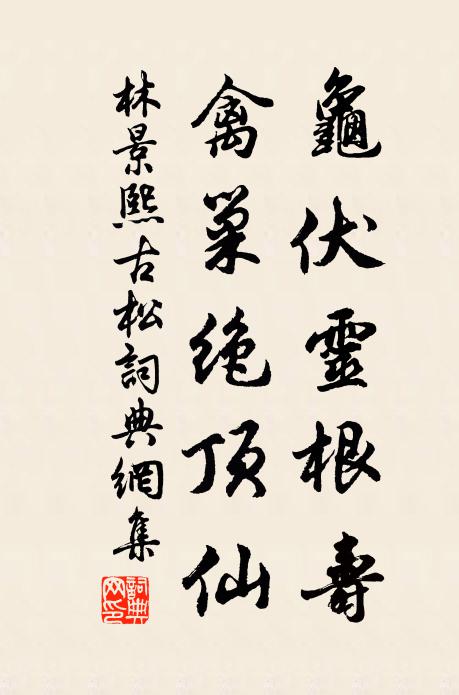 龜伏靈根壽
禽巢絶頂仙
林景熙古松詞典網集
詞典
网印